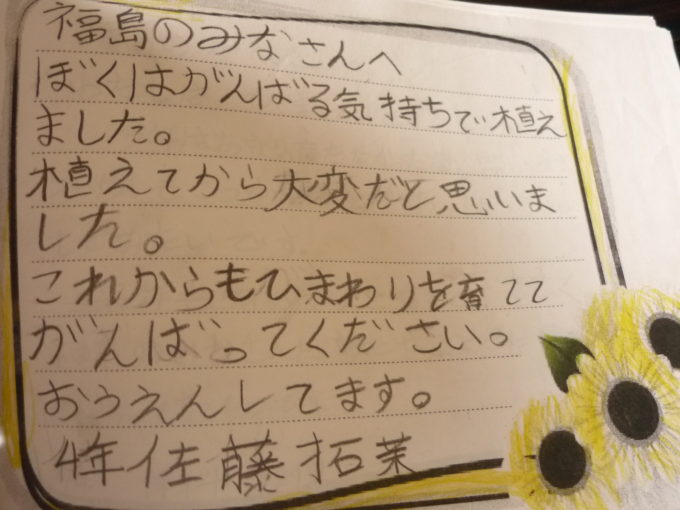 福島のみなさんへ
ぼくはがんばる気持ちで植え
ました。
植えてから大変だと思いま
した。
これからもひまわりを育てて
がんばってください。
おうえんしてます。
4年佐藤拓